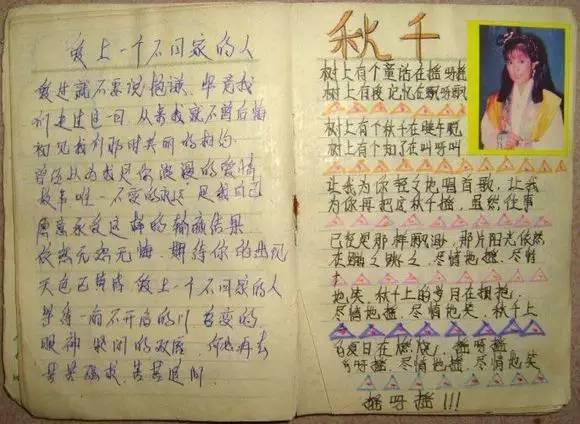 爱上一个不回家的人
爱过就不要说抱歉，毕竟我
们走过这一回，从来我就不曾后悔
初见我们那时共同的相约
曾经以为我是你浪漫的爱情
故事唯一不变的永远，是我自己
愿意承受这样的输赢结果
依然无怨无悔，期待你的出现
天色已黄昏 爱上一个不回家的人
等待一扇不开启的门 善变的
眼神 紧闭的双唇 何必再去
苦苦强求，苦苦追问
秋千
树上有个童话在摇呀摇
树上有段记忆在飘呀飘
树上有个秋千在
树上有个知了在叫呀叫
让我为你轻轻地唱首歌，让我
为你再把这秋千摇，虽然往事
已经是那样飘渺，那片阳光依然
在跳之跳之，尽情地摇，尽情
地笑，秋千上的岁月在拥抱，
尽情地摇，尽情地笑，秋千上
的夏日在燃烧，摇呀摇
呀摇，尽情地摇，尽情地笑
摇呀摇!!!